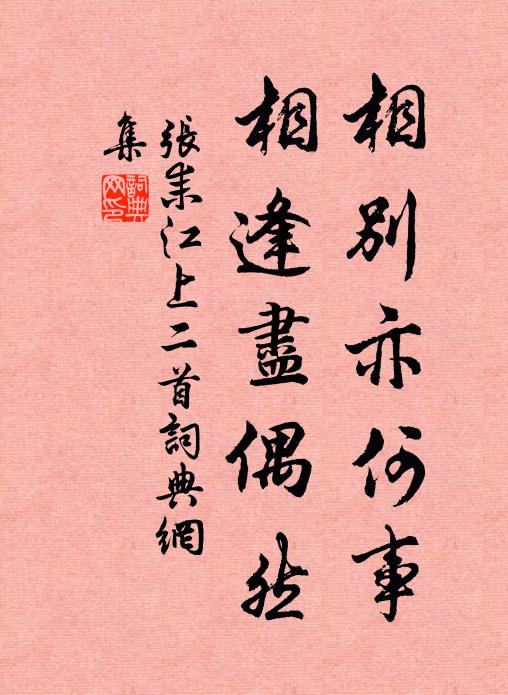 相別亦何事
相逢盡偶然
張耒江上二首詞典網
集
詞典
网印